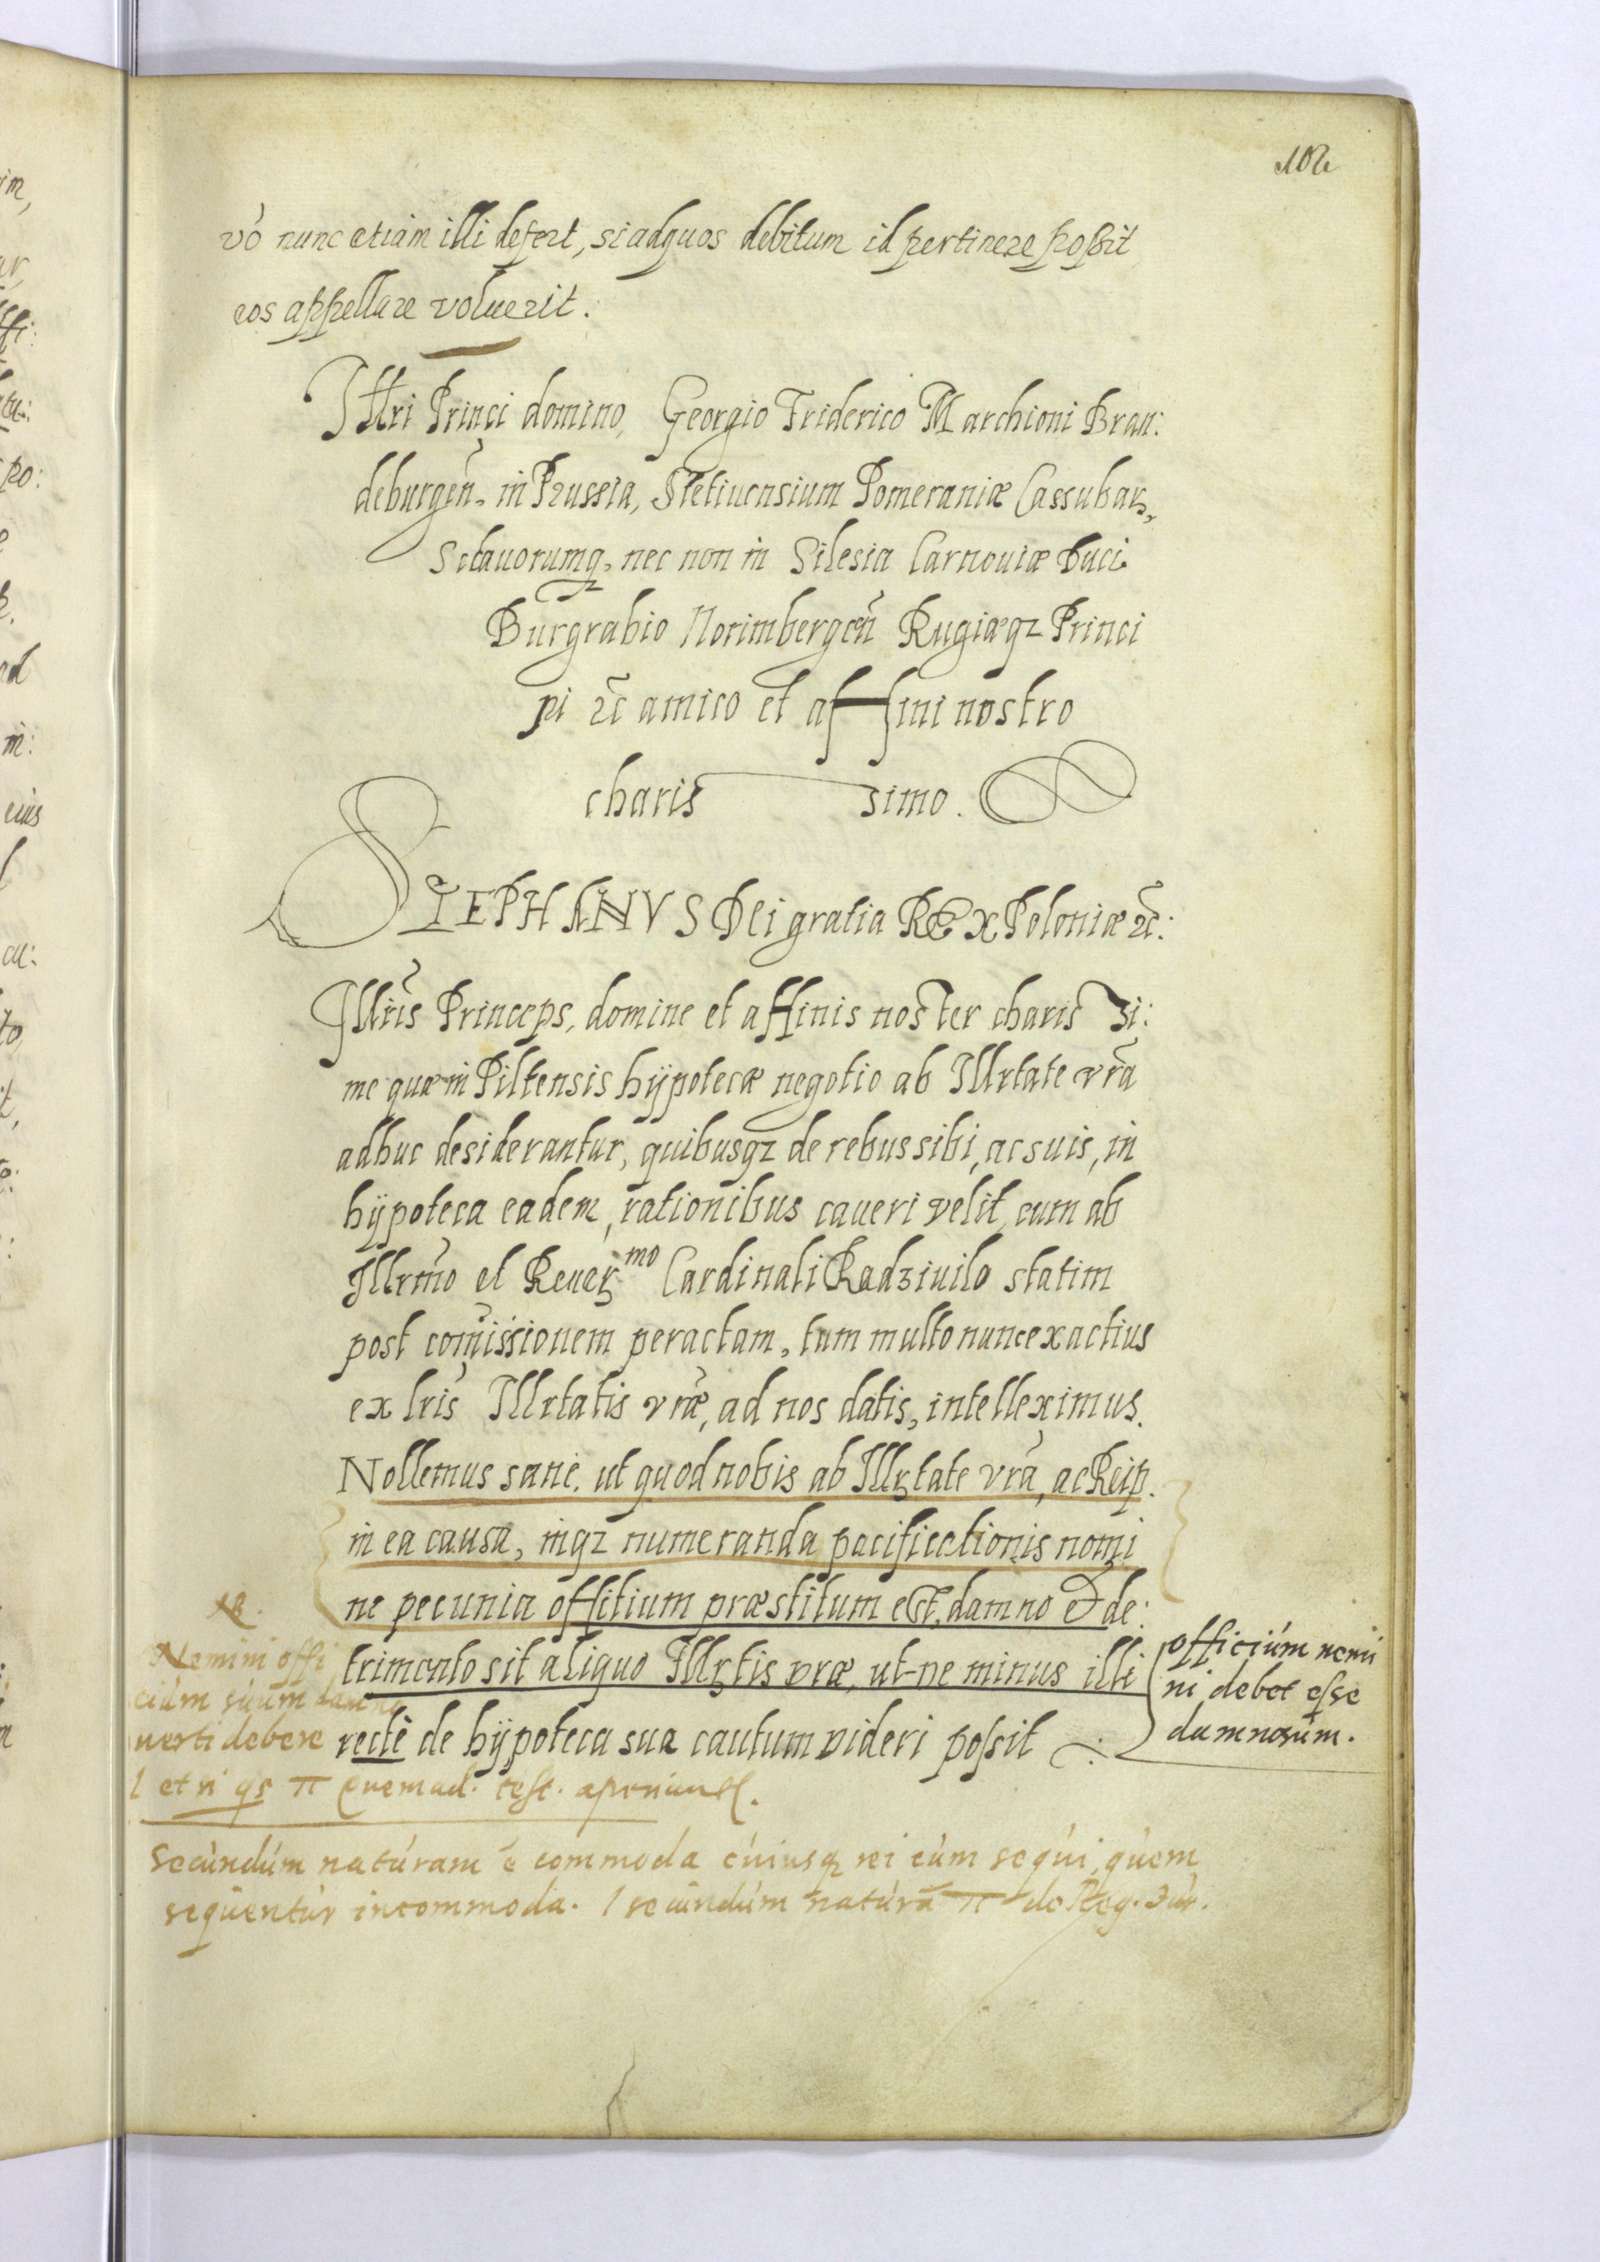 102
vo nunc etiam illi defert, si ad quos debitum id pertinere possit
eos appellare voluerit.
Illri Princi domino, Georgio Friderico Marchioni Bran:
deburgen. in Prussia, Stetinensium Pomeraniæ Cassubar,
Sclauorumq, nec non in Silesia Carnouiæ Duci
Burgrabio Norimbergen Rugiæqz Princi
pi etc amico et affini nostro
charis simo.
STEPHANVS DEi gratia REX Poloniæ etc:
Illris Princeps, domine et affinis noster charis si:
me quæ in Piltensis hÿpotecæ negotio ab Illrtate vra
adhuc desiderantur, quibusqz de rebus sibi, ac suis, in
hÿpoteca eadem, rationibus caueri velit, cum ab
Illrmo et Reuer mo Cardinali Radziuilo statim
post comissionem peractam, tum multo nunc exactius
ex lris Illrtatis vræ, ad nos datis, intelleximus.
Nollemus sane. ut quod nobis ab Illrtate vra, ac Reip.
in ea causa, inqz numeranda pacifiectionis nomi
ne pecunia offitium præstitum est, damno et de:
trimento sit aliquo Illrtis vræ, ut ne minus illi
recte de hÿpoteca sua cautum videri possit
officium nemi
ni debet esse
damnosum.
Nemini offi
cium suum damno
uerti debere
l et si qs π quemad. test. aperiunt.
Secundum naturam e commoda cuiusq rei eum sequi, quem
sequentur incommoda. l secundum natura π de Reg. Jur.